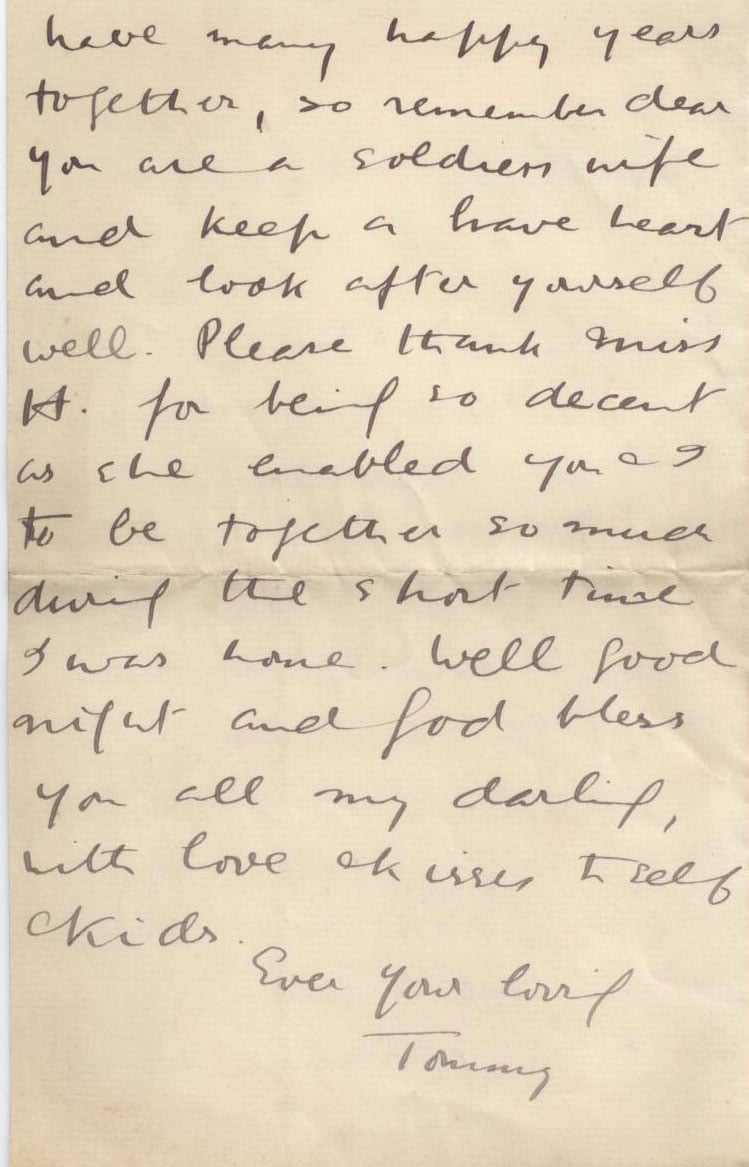 have many happy years
together, so remember dear
you are a soldiers wife
and keep a brave heart
and look after yourself
well. Please thank Miss
H. for being so decent
as she enabled you & I
to be together so much
during the short time
I was home. Well good
night and God bless
you all my darling,
with love & kisses to self
& kids.
Ever your loving
Tommy